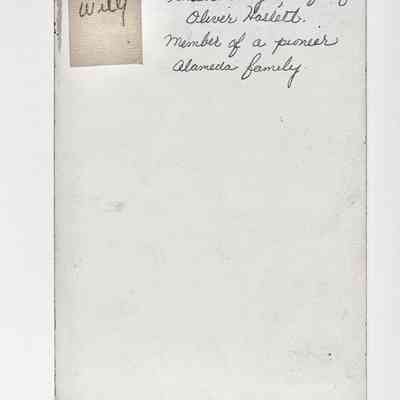 Willy
Oliver Haslett.
Member of a pioneer
Alameda family.